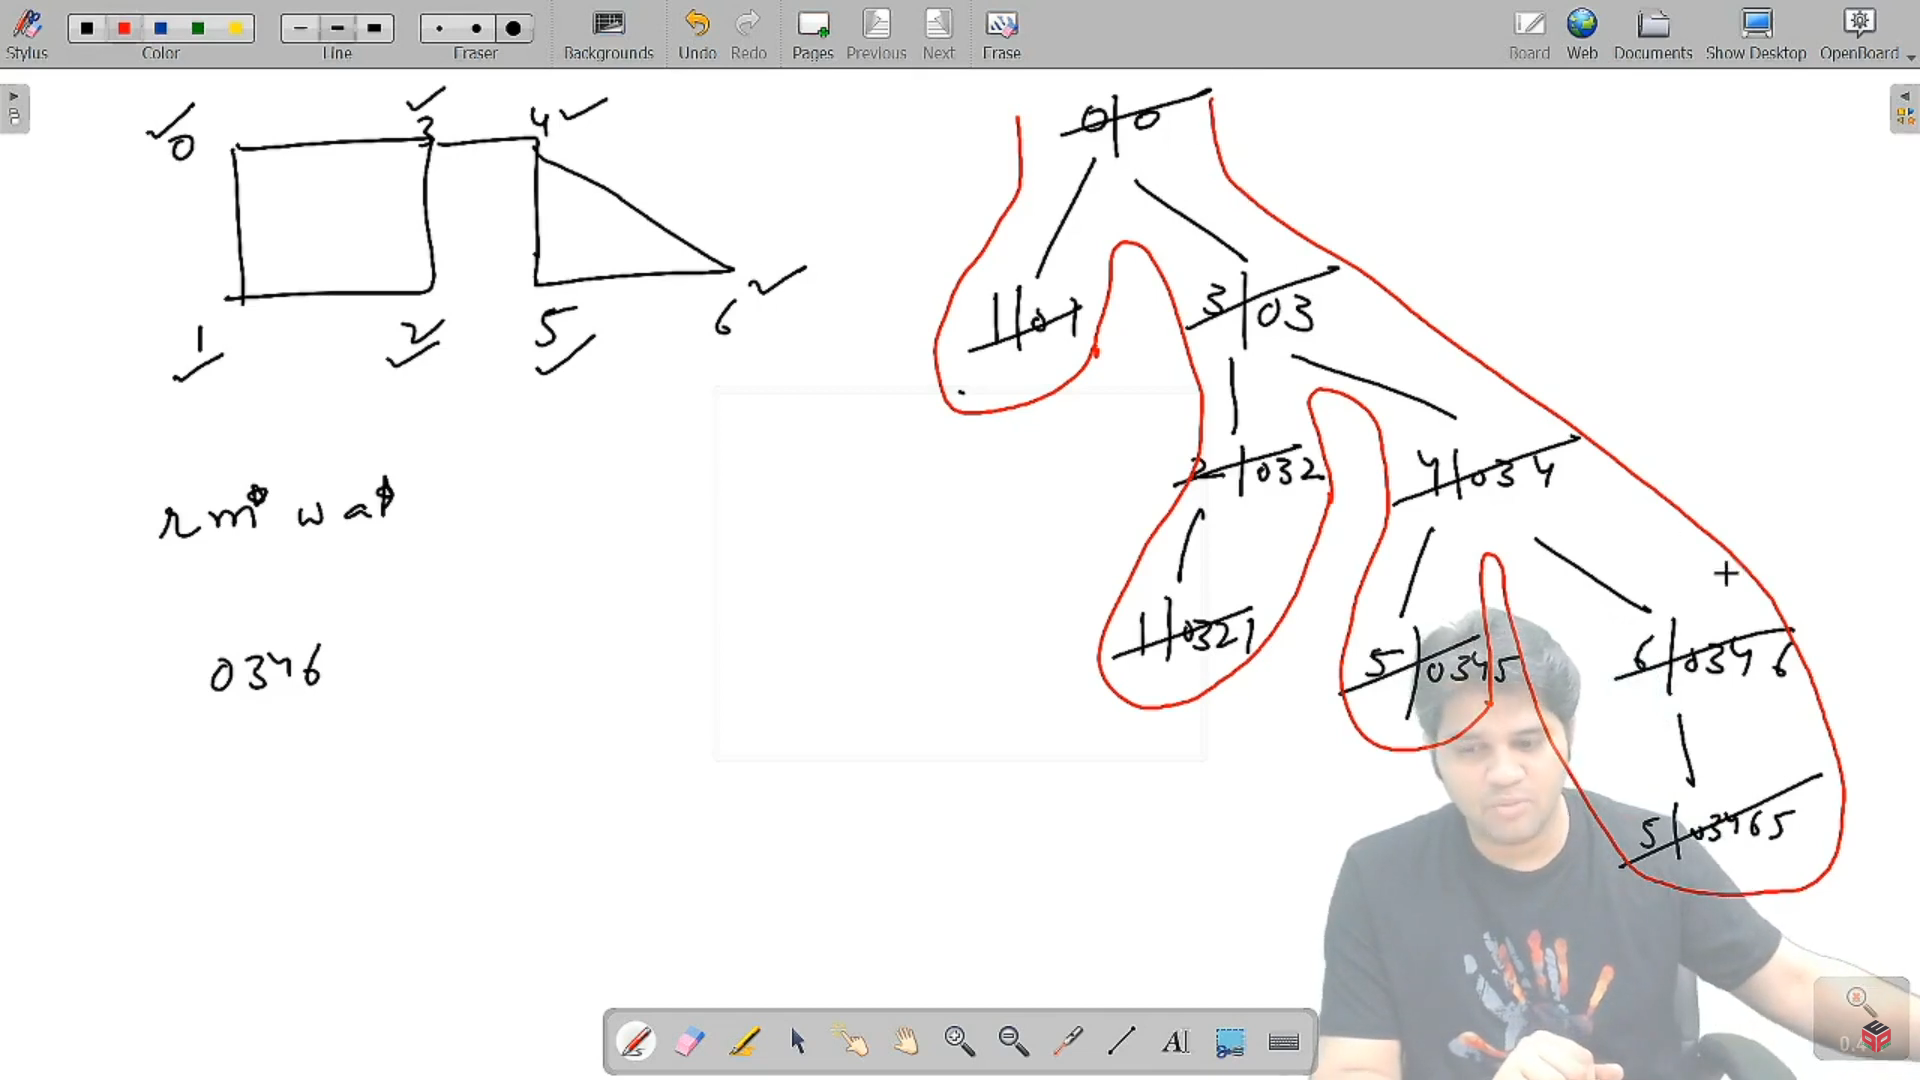 Stylus
Color
Line
Eraser
Backgrounds
Undo
Redo
Pages
Previous
Next
Erase
Board
Web
Documents
Show Desktop
OpenBoard
0
3
4
1
2
5
6
0|0
1|01
3|03
2|032
4|034
1|0321
5|0345
6|0346
5|03465
r m* w a*
0346
AI
0.4